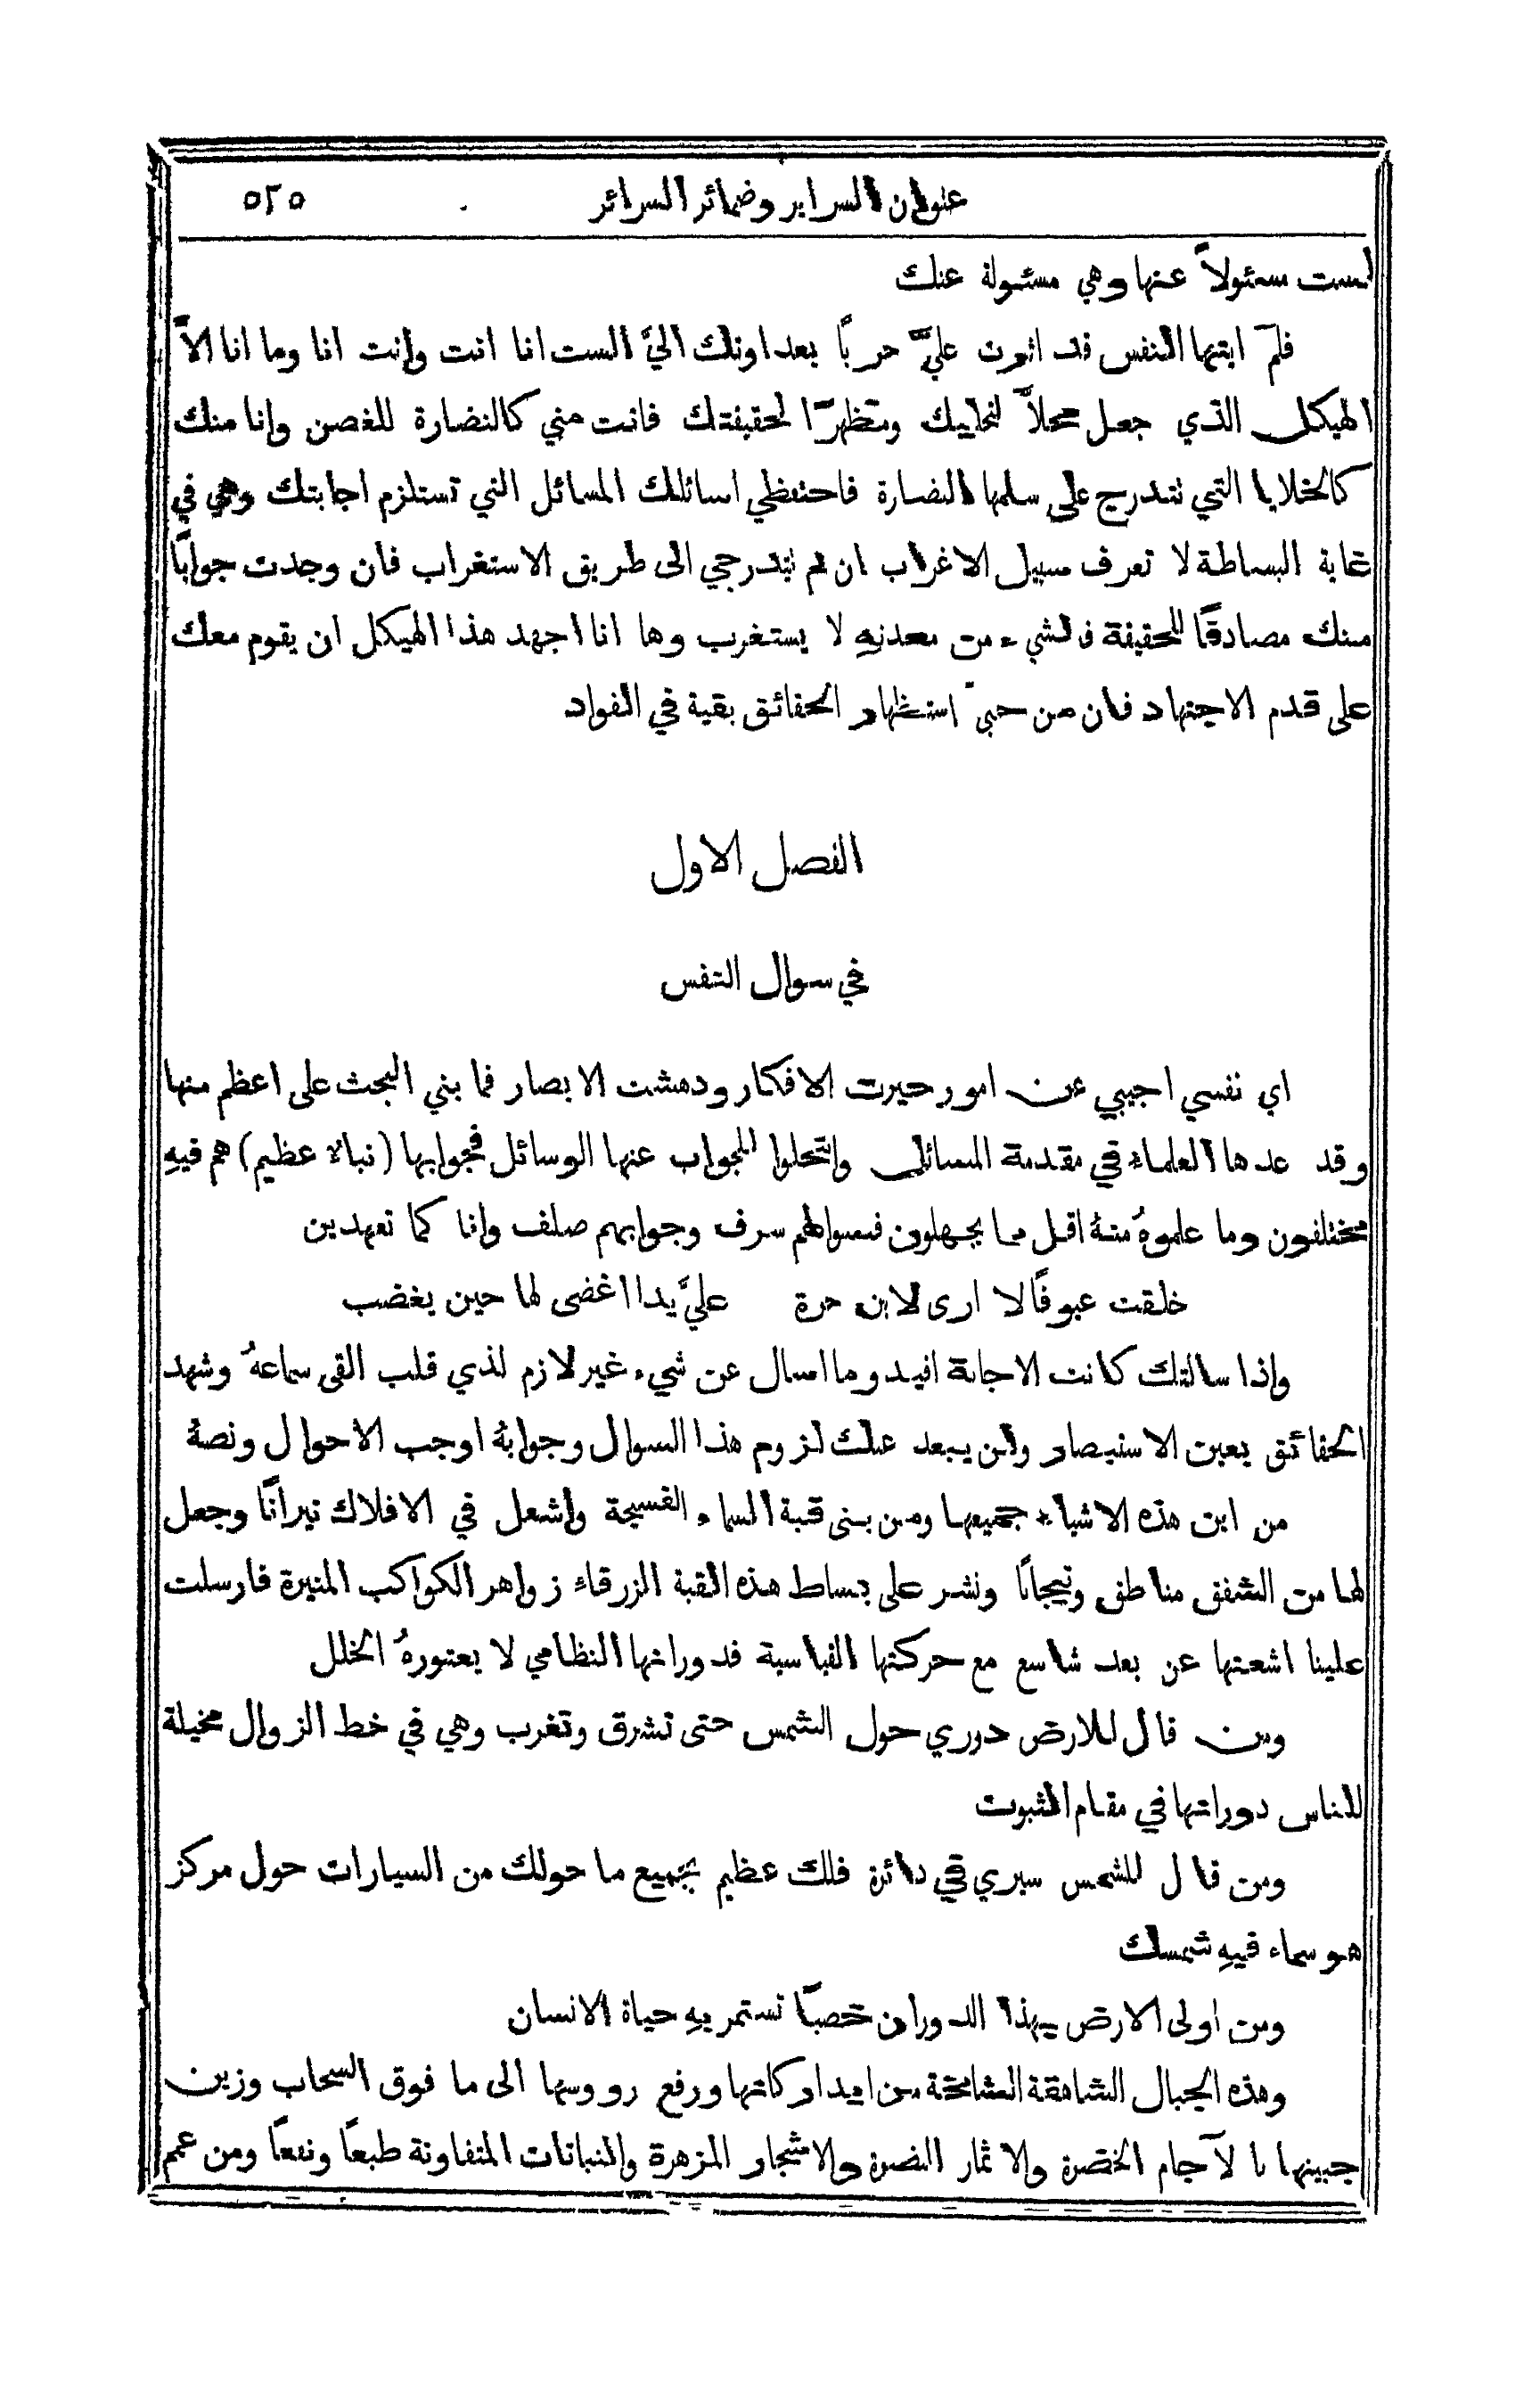 عنوان السراير وضمائر السرائر ٥٢٥
لست مسئولاً عنها وهي مسئولة عنك
فلمَ ايتها النفس قد اثرت عليَّ حرباً بعد اونك اليَّ الست انا انت وانت انا وما انا الاَّ
الهيكل الذي جعل محلاً لتجليك ومظهرًا لحقيقتك فانت مني كالنضارة للغصن وانا منك
كالخلايا التي تتدرج على سلمها النضارة فاحتفظي اسائلك المسائل التي تستلزم اجابتك وهي في
غاية البساطة لا تعرف سبيل الاغراب ان لم نتدرجي الى طريق الاستغراب فان وجدت جوابًا
منك مصادقًا للحقيقة فالشيء من معدنهِ لا يستغرب وها انا اجهد هذا الهيكل ان يقوم معك
على قدم الاجتهاد فان من حبي استظهار الحقائق بقية في الفواد
الفصل الاول
في سوال النفس
اي نفسي اجيبي عن امور حيرت الافكار ودهشت الابصار فما بني البحث على اعظم منها
وقد عدها العلماء في مقدمة المسائل وانتحلوا للجواب عنها الوسائل فجوابها (نباء عظيم) هم فيهِ
مختلفون وما علموهُ منهُ اقل مما يجهلون فسوالهم سرف وجوابهم صلف وانا كما تعهدين
خلقت عيوفًا لا ارى لابن حرة عليَّ يدا اغضى لها حين يغضب
واذا سالتك كانت الاجابة افيد وما اسال عن شيء غير لازم لذي قلب القى سماعهُ وشهد
الحقائق بعين الاستبصار ولن يبعد عنك لزوم هذا السوال وجوابهُ اوجب الاحوال ونصهُ
من اين هذه الاشياء جميعها ومن بنى قبة السماء الفسيحة واشعل في الافلاك نيرانًا وجعل
لها من الشفق مناطق وتيجانًا ونشر على بساط هذه القبة الزرقاء زواهر الكواكب المنيرة فارسلت
علينا اشعتها عن بعد شاسع مع حركتها القياسية فدورانها النظامي لا يعتورهُ الخلل
ومن قال للارض دوري حول الشمس حتى تشرق وتغرب وهي في خط الزوال مخيلة
للناس دورانها في مقام الثبوت
ومن قال للشمس سيري في دائرة فلك عظيم بجميع ما حولك من السيارات حول مركز
هو سماء فيهِ شمسك
ومن اولى الارض بهذا الدوران خصبًا تستمر بهِ حياة الانسان
وهذه الجبال الشاهقة الشامخة من ايد اركانها ورفع رووسها الى ما فوق السحاب وزين
جبينها بالآجام الخضرة والاثمار النضرة والاشجار المزهرة والنباتات المتفاوتة طبعًا ونفعًا ومن عمم